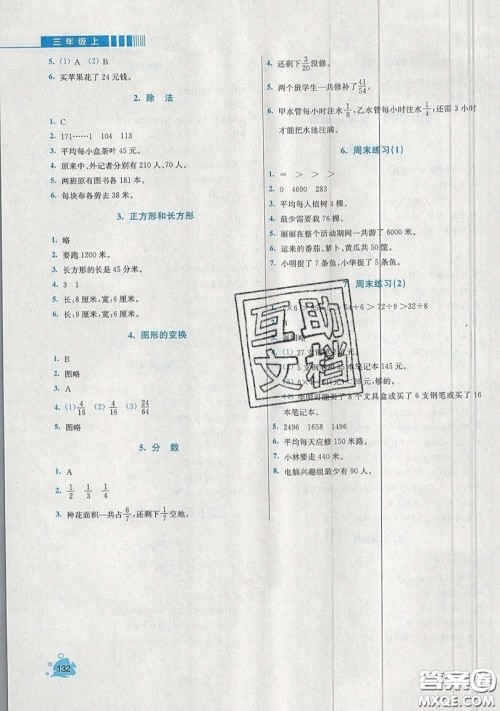 三年级上
5. (1) A (2) B
6. 买苹果花了 24 元钱。
2. 除 法
1. C
2. 171……1 204 123
3. 平均每小盒茶叶 45 元。
4. 原来中、外记者分别有 210 人、70 人。
5. 两班原有图书各 181 本。
6. 每块布各剪去 38 米。
3. 正方形和长方形
1. 图略
2. 要跑 1200 米。
3. 长方形的长是 45 分米。
4. 3 1
5. 长:8 厘米,宽:6 厘米;
长:9 厘米,宽:5 厘米。
4. 图形的变换
1. B
2. 图略
3. B
4. (1) 4/16 (2) 4/16 (3) 24/64
5. 图略
5. 分 数
1. A
2. 1/2 1/3 1/4
3. 种花面积一共占 6/7,还剩下 1/7 空地。
4. 还剩下 3/20 没修。
5. 两个班学生一共修补了 41/54。
6. 甲水管每小时注水 1/8,乙水管每小时注水 1/4,还需 3 小时
才能把水池注满。
6. 周末练习(1)
1. = > > >
2. 0 4690 283
3. 平均每人植树 4 棵。
4. 最少需要栽 76 棵。
5. 丽丽在整个活动期间一共游了 6000 米。
6. 运来的番茄、萝卜、黄瓜共 50 筐。
7. 小明捉了 7 条鱼,小华捉了 5 条鱼。
7. 周末练习(2)
×6 > 54÷6 > 72÷9 > 32÷8
B
图略
(1) 27
支钢笔 本笔记本 145 元。
元,够的。
可能买了 8 个文具盒或买了 6 支钢笔或买了 16
本笔记本。
5. 2496 1658 1496
6. 平均每天应修 150 米路。
7. 小林要走 440 米。
8. 电脑兴趣组最少有 90 人。
互助
文档
132
答案圈
MXQE.COM